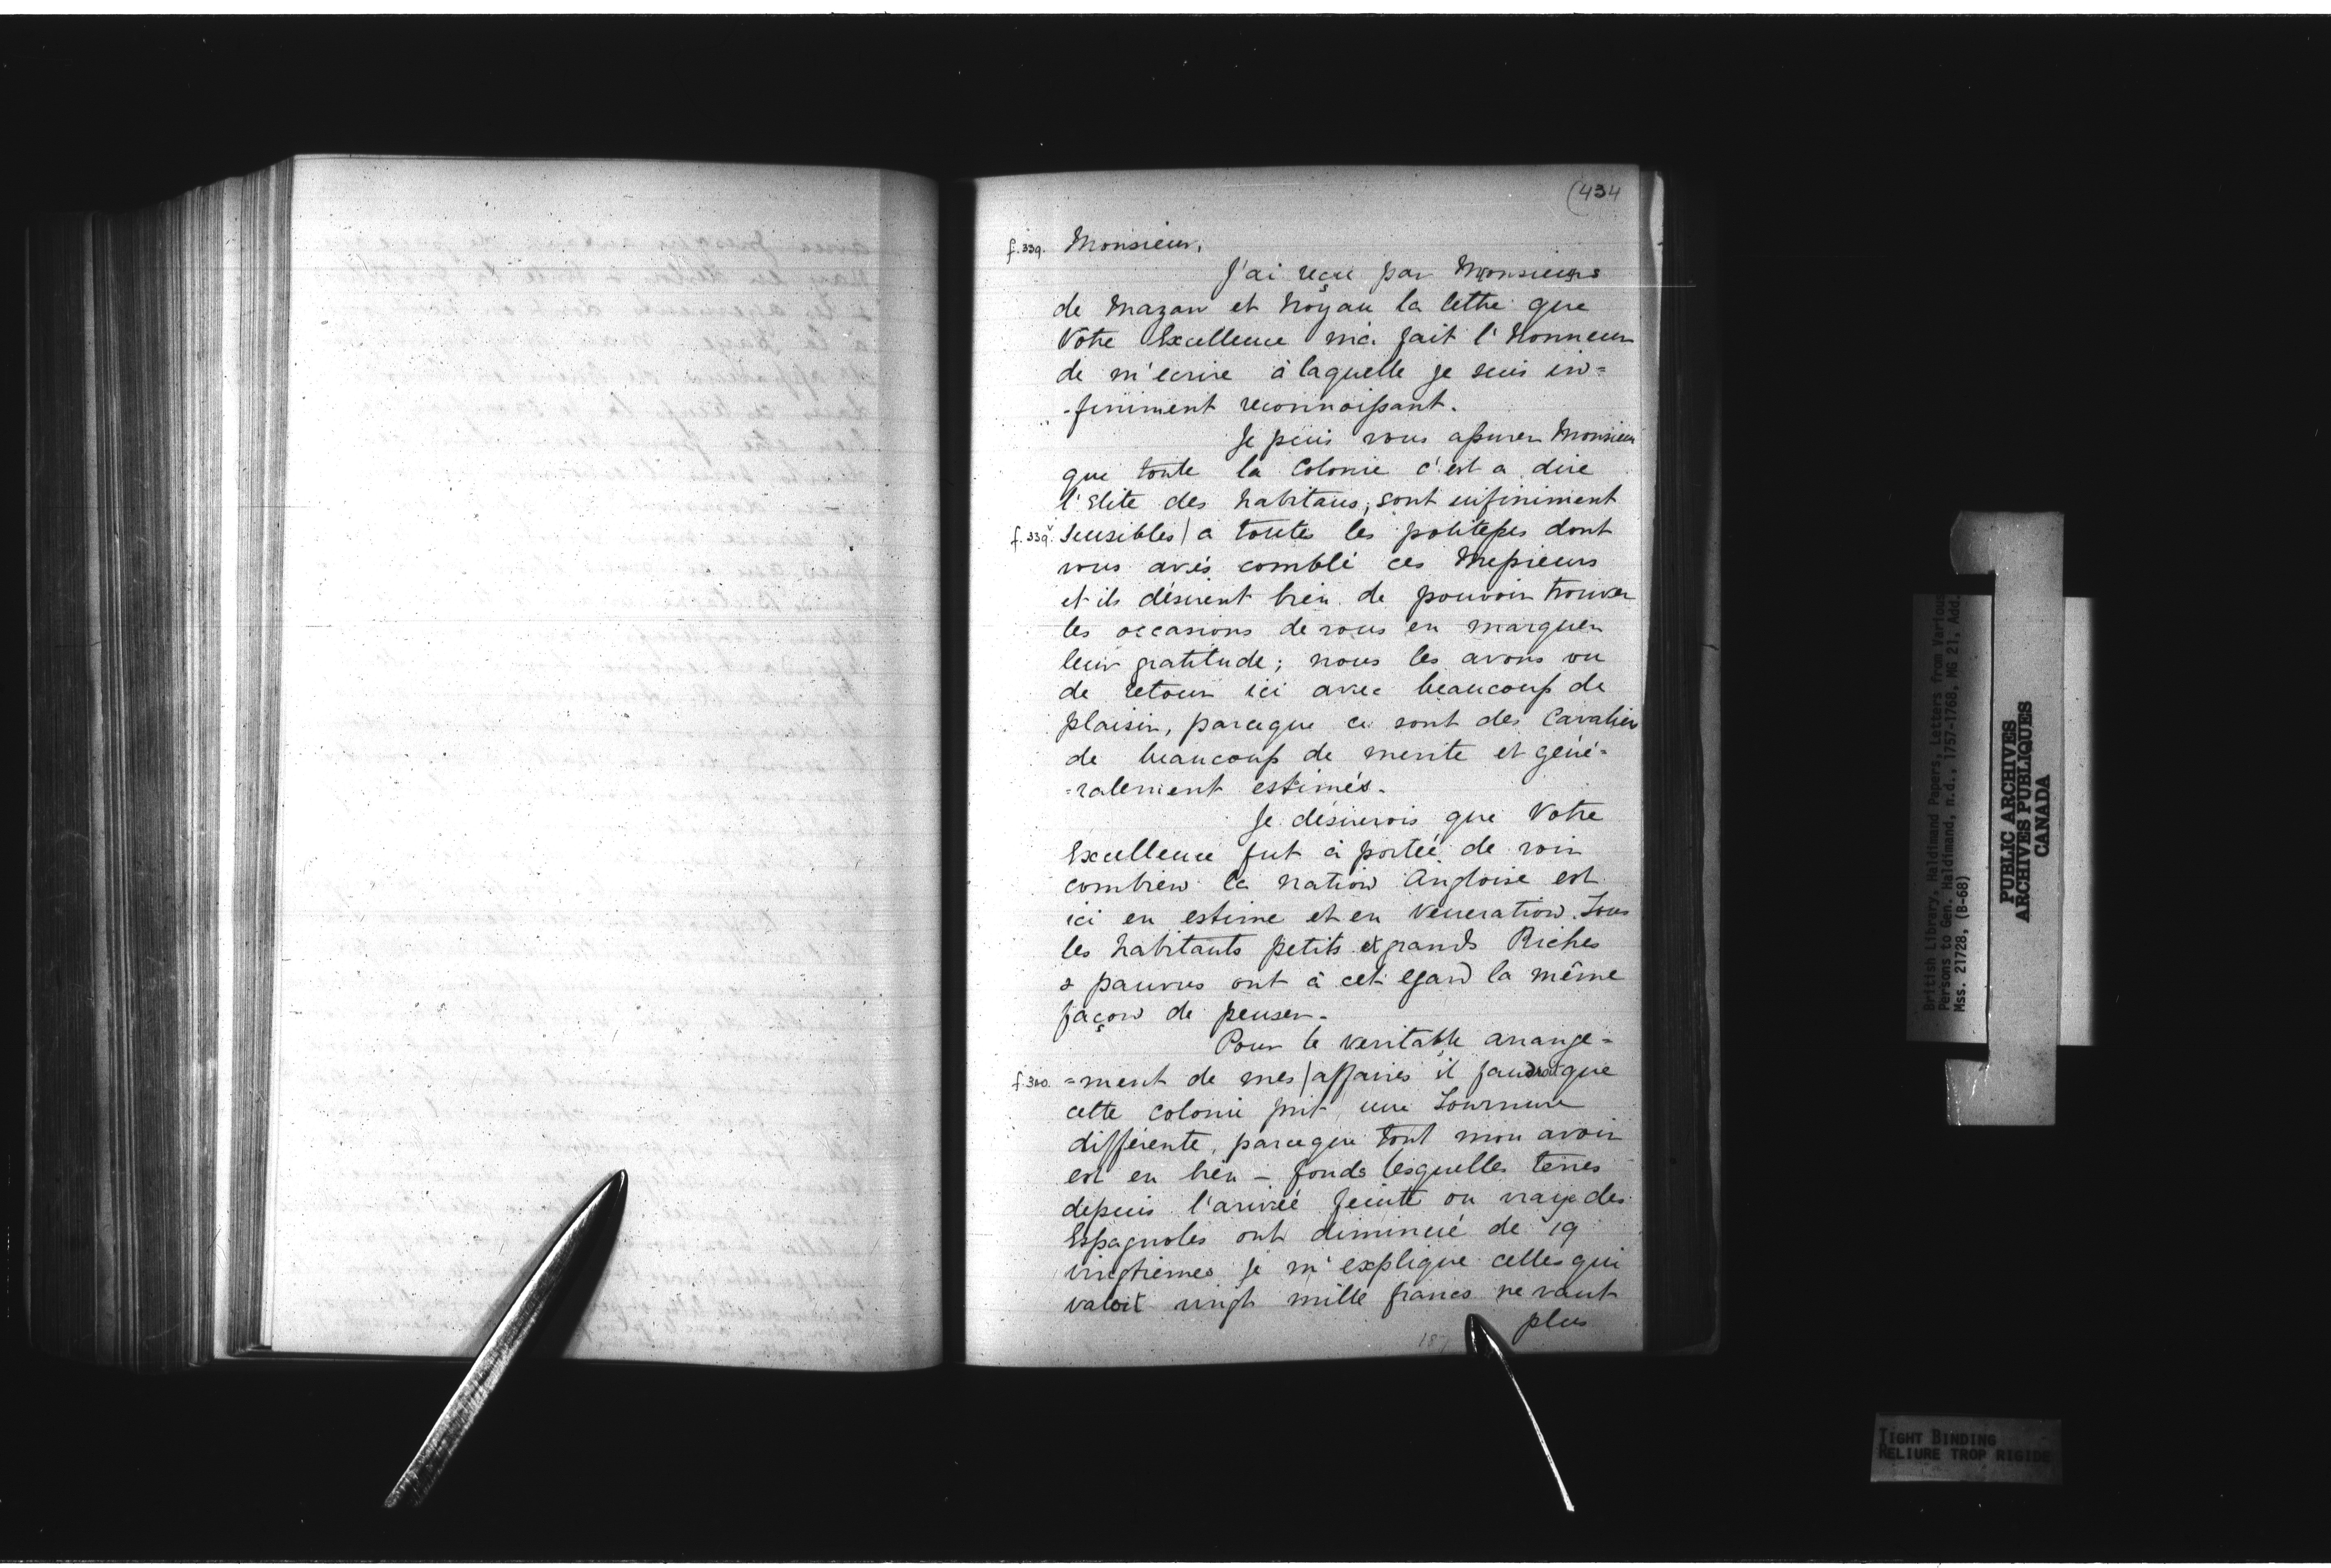 (434
f.339. Monsieur,
J'ai reçu par Monsieurs
de Mazan et Noyau la lettre que
Votre Excellence m'a fait l'Honneur
de m'ecrire à laquelle je suis in=
-finiment reconnoissant.
Je puis vous assurer Monsieur
que toute la Colonie c'est a dire
l'Elite des habitans, sont infiniment
f.339.v sensibles / a toutes les politesses dont
vous avés comblé ces Messieurs
et ils désirent bien de pouvoir trouver
les occasions de vous en marquer
leur gratitude; nous les avons vu
de retour ici avec beaucoup de
plaisir, parceque ce sont des Cavalier
de beaucoup de merite et géné=
=ralement estimés.
Je désirerois que Votre
Excellence fut à portée de voir
combien la nation Angloise est
ici en estime et en Veneration. Tous
les habitants petits et grands Riches
& pauvres ont à cet egard la même
façon de penser.
Pour le veritable arrange=
f.340. =ment de mes / affaires il faudroit que
cette colonie prit une Tournure
différente, parceque tout mon avoir
est en bien - fonds lesquelles terres
depuis l'arivée feinte ou vraye des
Espagnoles ont diminué de 19
vingtiemes je m'explique celles qui
valoit vingt mille francs ne vaut
plus
187
British Library, Haldimand Papers, Letters from Various
Persons to Gen. Haldimand, n.d., 1757-1768, MG 21, Add.
Mss. 21728, (B-68)
PUBLIC ARCHIVES
ARCHIVES PUBLIQUES
CANADA
TIGHT BINDING
RELIURE TROP RIGIDE